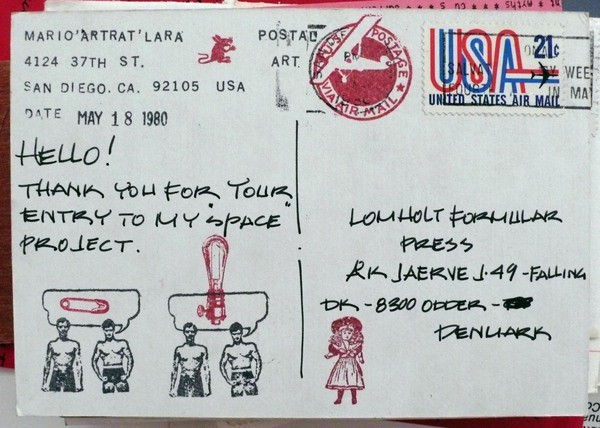 MARIO 'ARTRAT' LARA
4124 37TH ST.
SAN DIEGO. CA. 92105 USA
DATE MAY 18 1980
POSTAL
ART
POSTAGE
VIA AIR MAIL
USA
21¢
UNITED STATES AIR MAIL
HELLO!
THANK YOU FOR YOUR
ENTRY TO MY "SPACE"
PROJECT.
LOMHOLT FORMULAR
PRESS
ÅK JAERVE J. 49 - FALLING
DK - 8300 ODDER -
DENMARK